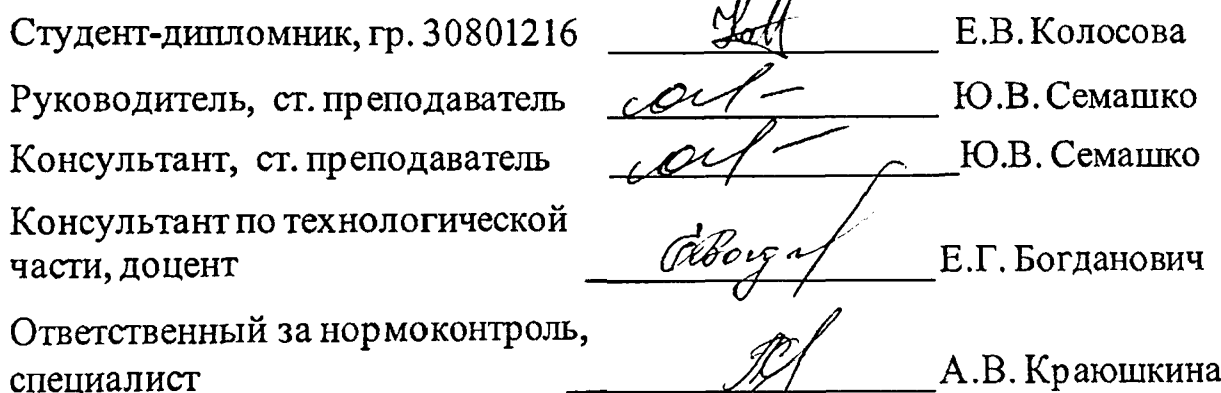 Студент-дипломник, гр. 30801216 Е.В. Колосова
Руководитель, ст. преподаватель Ю.В. Семашко
Консультант, ст. преподаватель Ю.В. Семашко
Консультант по технологической
части, доцент Е.Г. Богданович
Ответственный за нормоконтроль,
специалист А.В. Краюшкина